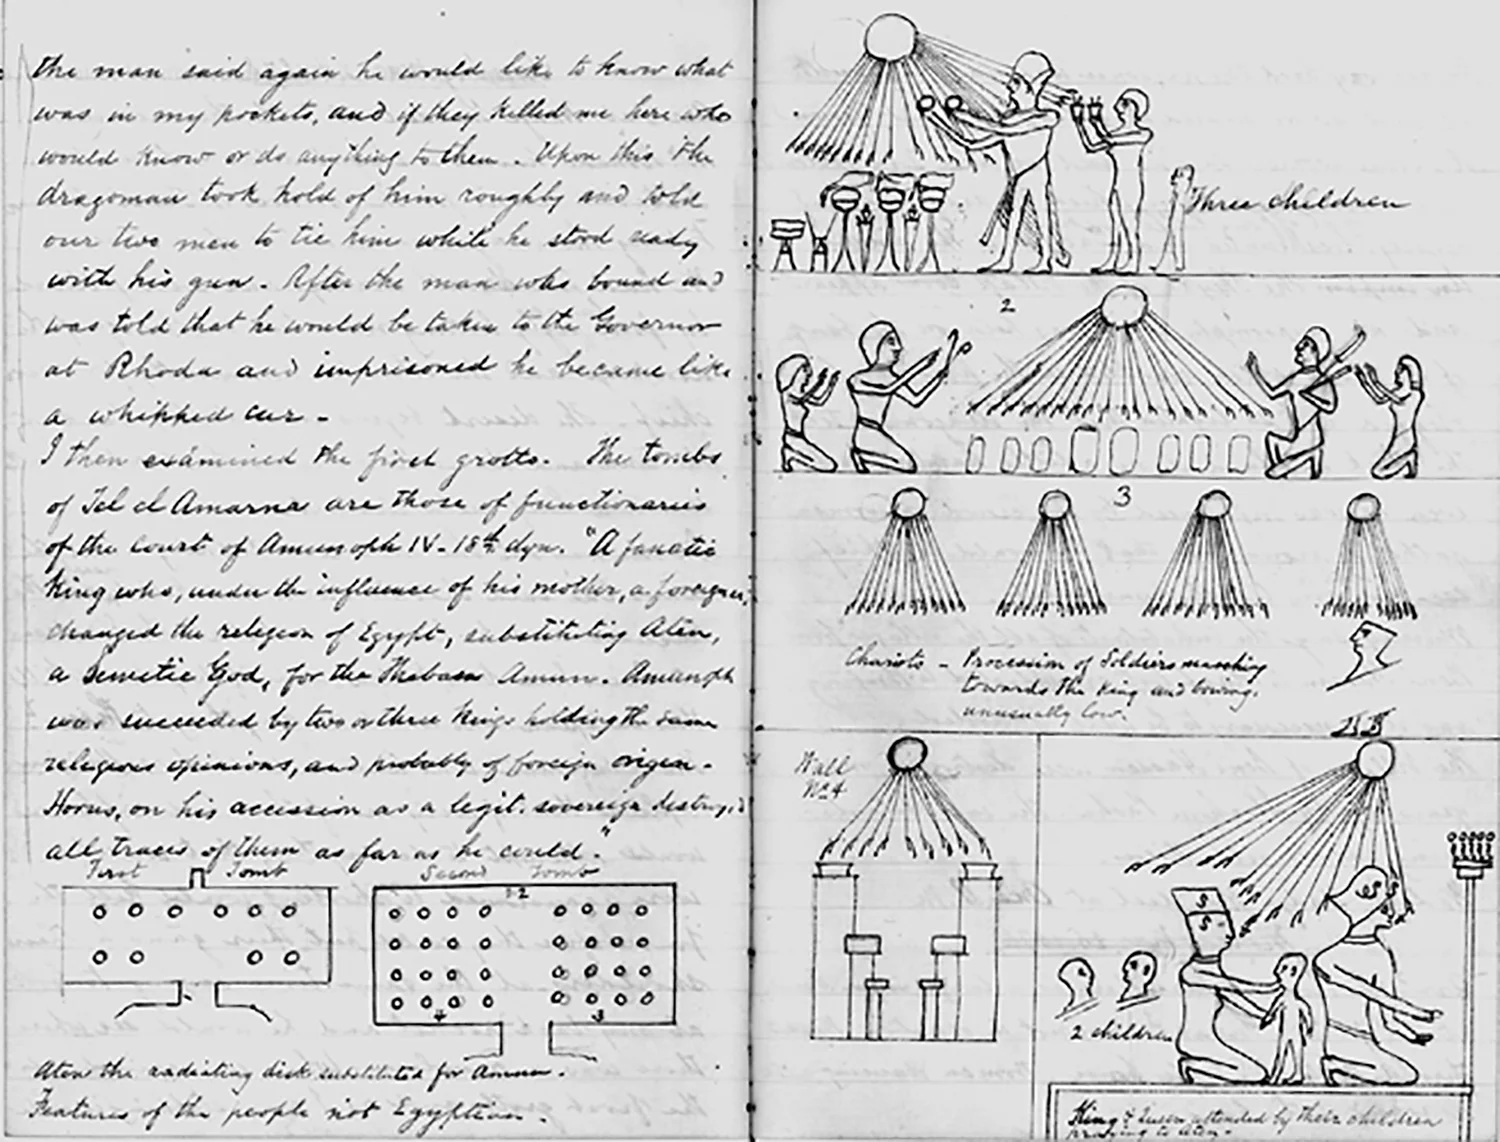 the man said again he would like to know what
was in my pockets, and if they killed me here who
would know or do anything to them. Upon this the
dragoman took hold of him roughly and told
our two men to tie him while he stood ready
with his gun. After the man was bound and
was told that he would be taken to the Governor
at Rhoda and imprisoned he became like
a whipped cur -
I then examined the first grotto. The tombs
of Tel el Amarna are those of functionaries
of the court of Amunoph IV - 18th dyn. "A fanatic
King who, under the influence of his mother, a foreigner,
changed the religion of Egypt, substituting Aten,
a Semetic God, for the Theban Amun. Amunoph
was succeeded by two or three Kings holding the same
religious opinions, and probably of foreign origin -
Horus, on his accession as a legit. sovereign destroyed
all traces of them as far as he could."
First Tomb
Second Tomb
1-2
4
3
Aten the radiating disk substituted for Amun.
Features of the people not Egyptian.
Three children
2
3
Chariots - Procession of Soldiers marching
towards the King and bowing
unusually low.
Wall
No. 4
2 children
King & Queen attended by their children
praying to Aten -